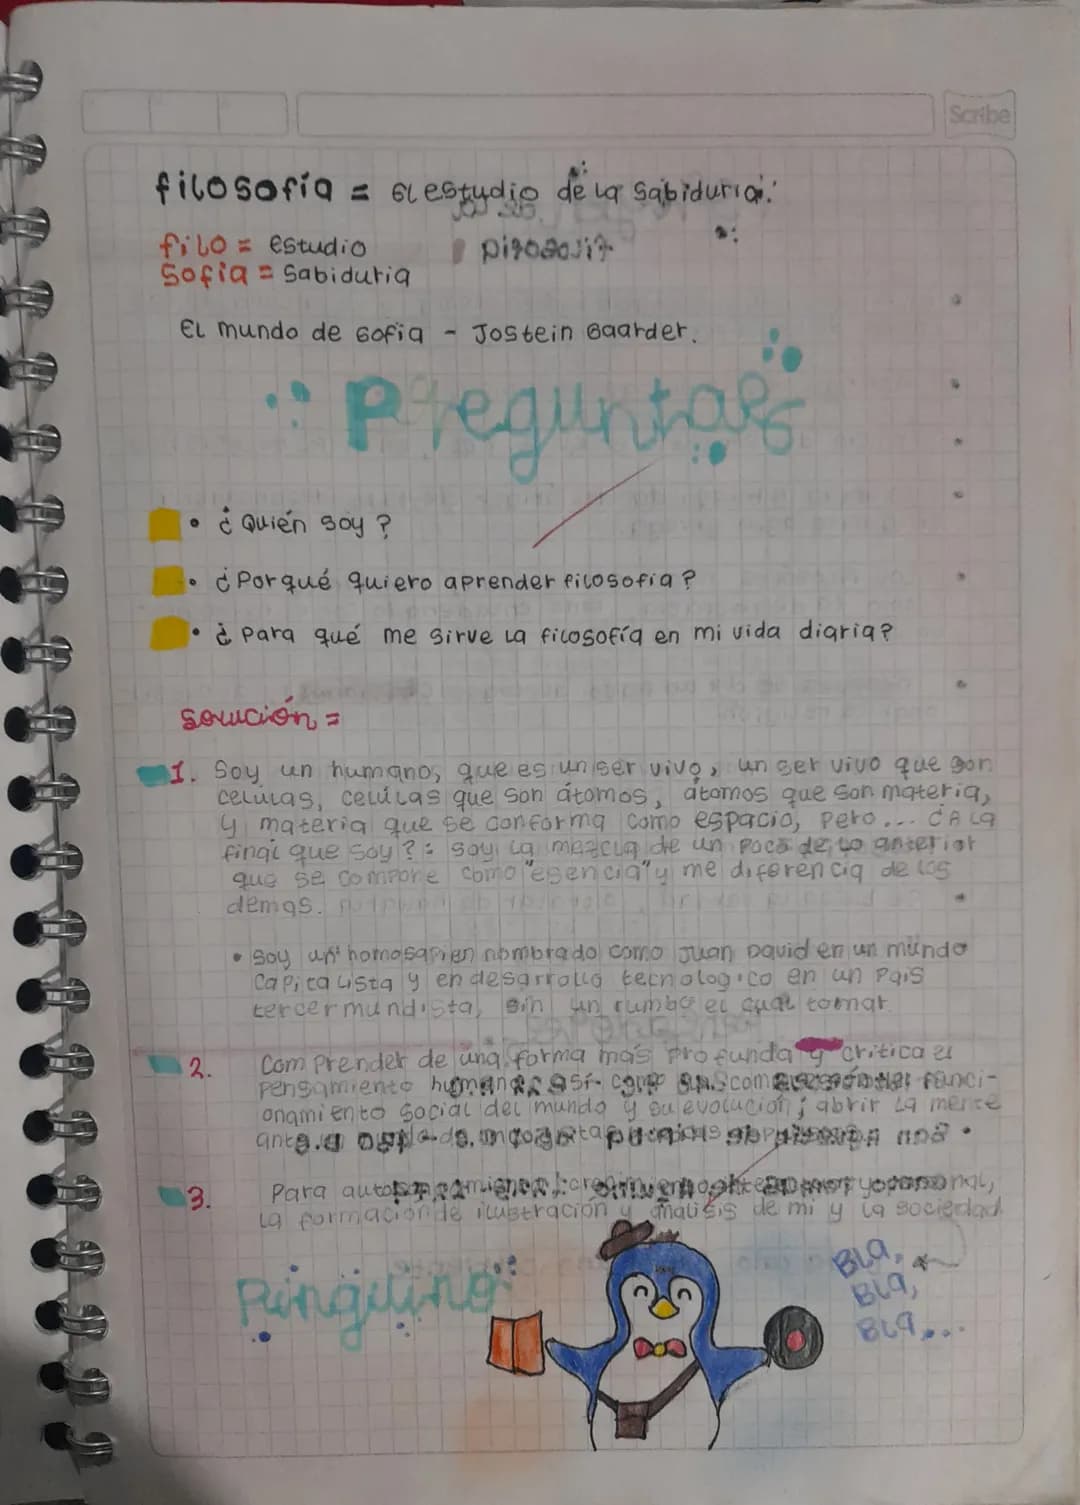 Scribe
filosofía = El estudio de la sabiduria.
filo = estudio
Sofia = Sabiduria
El mundo de Sofia - Jostein Gaarder.
Preguntas
• ¿Quién soy?
• ¿Porqué quiero aprender filosofia?
• ¿Para qué me sirve la filosofía en mi vida diaria?
Solución =
1. Soy un humano, que es un ser vivo, un ser vivo que son
celúlas, celúlas que son átomos, átomos que son materia,
y materia que se conforma como espacio, pero... ¿A la
final que soy?: soy la mezcla de un poco de lo anterior
que se compone como "esencia" y me diferencia de los
demas.
• Soy un homosapien nombrado como Juan David en un mundo
capitalista y en desarrollo tecnologico en un pais
tercermundista, sin un rumbo el cual tomar.
2. Comprender de una forma más profunda y critica el
pensamiento así como funci-
onamiento social del mundo y su evolución; abrir la mente
3. Para
la formación de ilustración y análisis de mi y la sociedad
Pinguino
Bla,
Bla,
Bla...